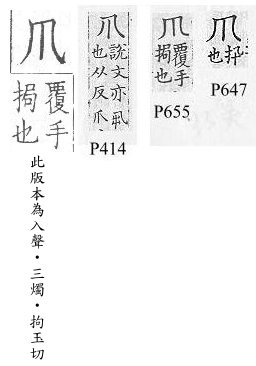 爪
覆手
挶也
此版本為入聲・三燭・拘玉切
爪
說文亦丮
也从反爪
P414
爪
覆手
挶也
P655
爪
也
P647